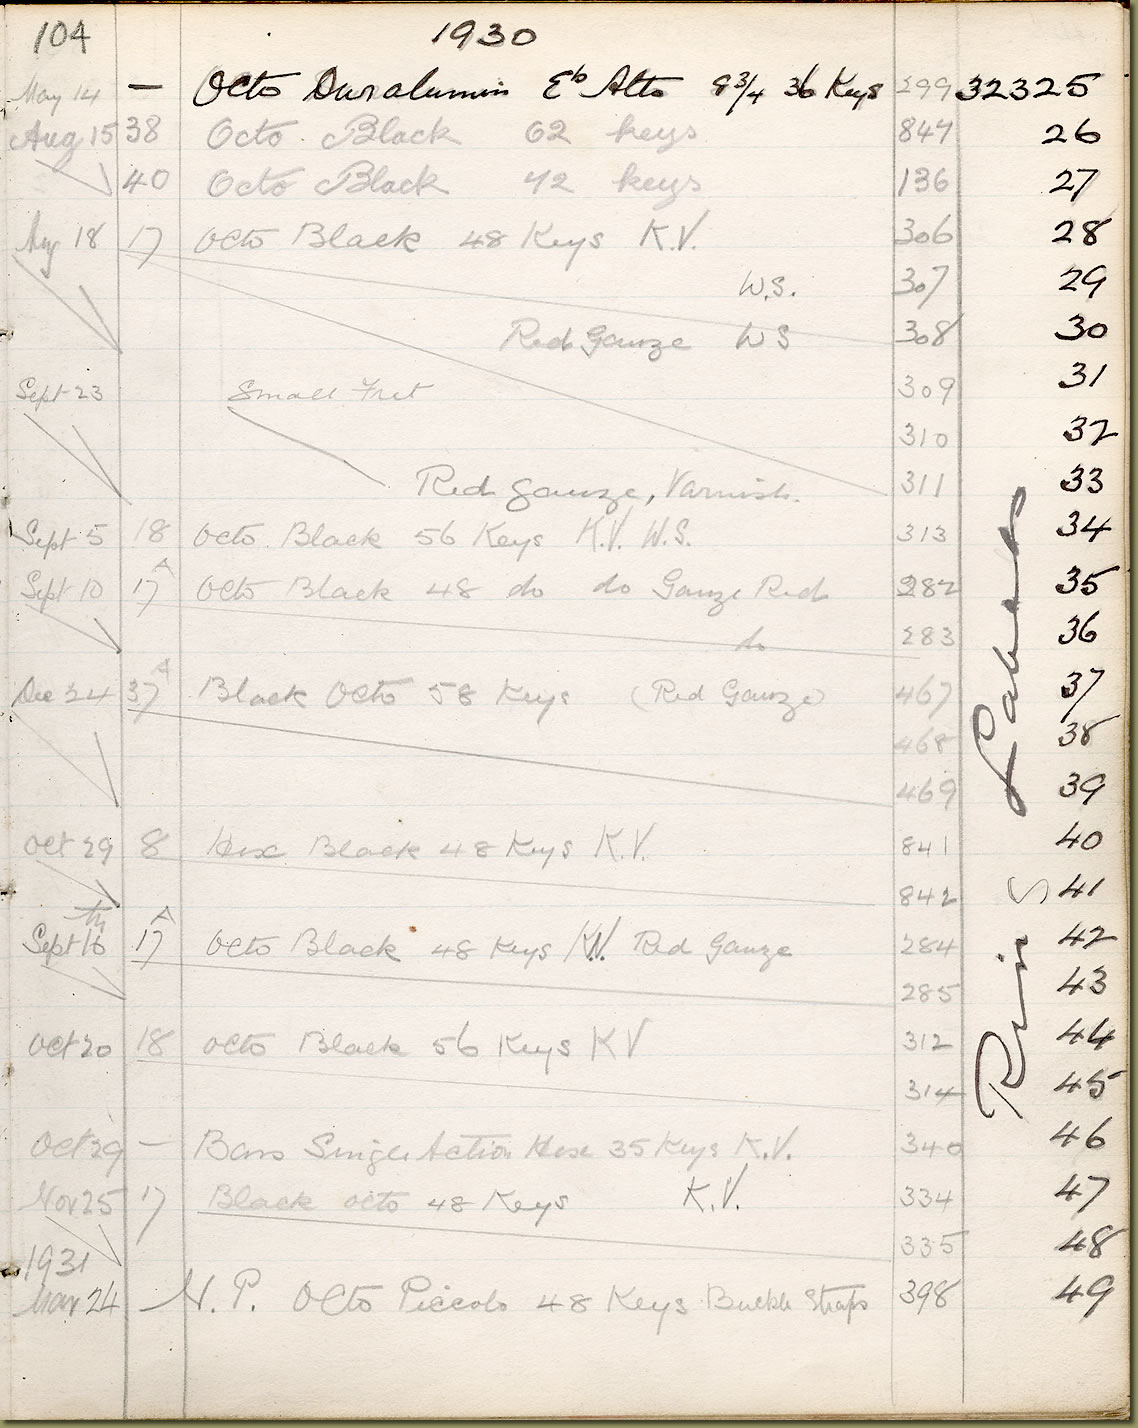 104 1930
May 14 — Octo Duralumin Eb Alto 8 3/4 36 Keys 299 32325
Aug 15 38 Octo. Black 62 keys 847 26
40 Octo Black 42 keys 136 27
Aug 18 17 Octo Black 48 Keys K.V. 306 28
W.S. 307 29
Red Gauze W S 308 30
Sept 23 Small Fret 309 31
310 32
Red Gauze, Varnish. 311 33
Sept 5 18 Octo Black 56 Keys K.V. W.S. 313 34
Sept 10 17A Octo Black 48 do do Gauze Red 282 35
do 283 36
Dec 24 37A Black Octo 58 Keys (Red Gauze) 467 37
468 38
469 39
Oct 29 8 Hex Black 48 Keys K.V. 841 40
842 41
Sept 16th 17A Octo Black 48 Keys K.V. Red Gauze 284 42
285 43
Oct 20 18 Octo Black 56 Keys K V 312 44
314 45
Oct 29 — Bass Single Action Hex 35 Keys K.V. 340 46
Nov 25 17 Black Octo 48 Keys K.V. 334 47
335 48
1931
Mar 24 — N. P. Octo Piccolo 48 Keys Buckle Straps 398 49